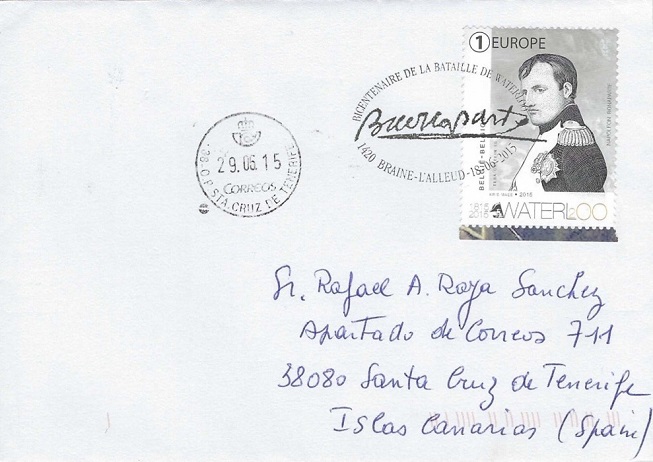 1 EUROPE
BICENTENAIRE DE LA BATAILLE DE WATERLOO
Buonaparte
1420 BRAINE-L'ALLEUD-18-06-2015
BELGIË-BELGIQUE
NAPOLEON BONAPARTE
2015
WATERLOO
200
29.06.15
CORREOS
STA. CRUZ DE TENERIFE
Sr. Rafael A. Raya Sanchez
Apartado de Correos 711
38080 Santa Cruz de Tenerife
Islas Canarias (Spain)